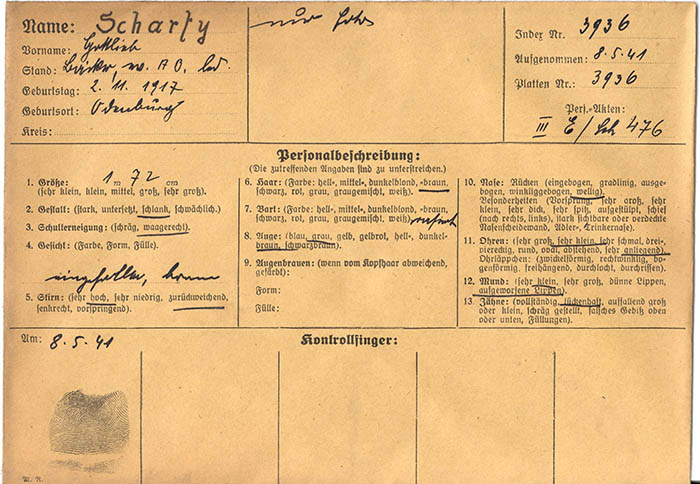 Name: Scharfy
Vorname: Gottlieb
Stand: Bäcker, led.
Geburtstag: 2. 11. 1917
Geburtsort: Ödenburg
Kreis:
nur
Index Nr. 3936
Aufgenommen: 8.5.41
Platten Nr.: 3936
Pers.-Akten:
III E/Sch 476
Personalbeschreibung:
(Die zutreffenden Angaben sind zu unterstreichen.)
1. Größe: 1 m 72 cm
(sehr klein, klein, mittel, groß, sehr groß).
2. Gestalt: (stark, untersetzt, schlank, schwächlich).
3. Schulterneigung: (schräg, waagerecht).
4. Gesicht: (Farbe, Form, Fülle).
eingefallen, braun
5. Stirn: (sehr hoch, sehr niedrig, zurückweichend,
senkrecht, vorspringend).
6. Haar: (Farbe: hell-, mittel-, dunkelblond, -braun,
schwarz, rot, grau, graugemischt, weiß).
7. Bart: (Farbe: hell-, mittel-, dunkelblond, -braun,
schwarz, rot, grau, graugemischt, weiß)
8. Auge: (blau, grau, gelb, gelbrot, hell-, dunkel-
braun, schwarzbraun).
9. Augenbrauen: (wenn vom Kopfhaar abweichend,
gefärbt):
Form:
Fülle:
10. Nase: Rücken (eingebogen, gradlinig, ausge-
bogen, winkliggebogen, wellig).
Besonderheiten (Vorsprung: sehr groß, sehr
klein, sehr dick, sehr spitz, aufgestülpt, schief
(nach rechts, links), stark sichtbare oder verdeckte
Nasenscheidewand, Adler-, Trinkernase).
11. Ohren: (sehr groß, sehr klein, sehr schmal, drei-
viereckig, rund, oval, abstehend, sehr anliegend).
Ohrläppchen: (zwickelförmig, rechtwinklig, bo-
genförmig, freihängend, durchlocht, durchrissen).
12. Mund: (sehr klein, sehr groß, dünne Lippen,
aufgeworfene Lippen).
13. Zähne: (vollständig, lückenhaft, auffallend groß
oder klein, schräg gestellt, falsches Gebiß oben
oder unten, Füllungen).
Am: 8.5.41
Kontrollfinger: